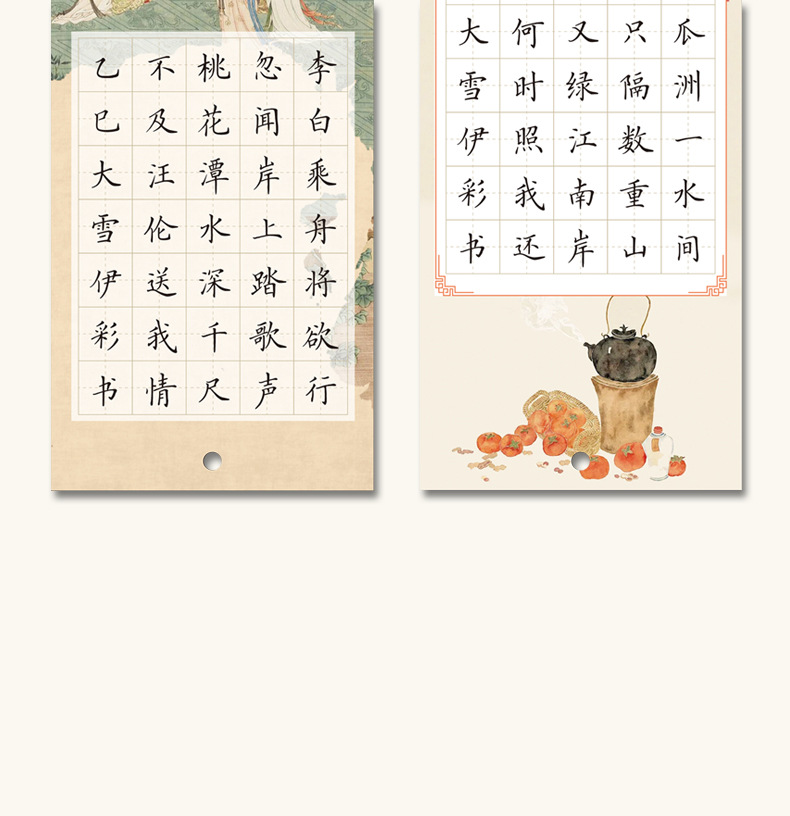 李白乘舟将欲行
忽闻岸上踏歌声
桃花潭水深千尺
不及汪伦送我情
乙巳大雪伊彩书
瓜洲一水间
只隔数重山
又绿江南岸
何时照我还
大雪伊彩书